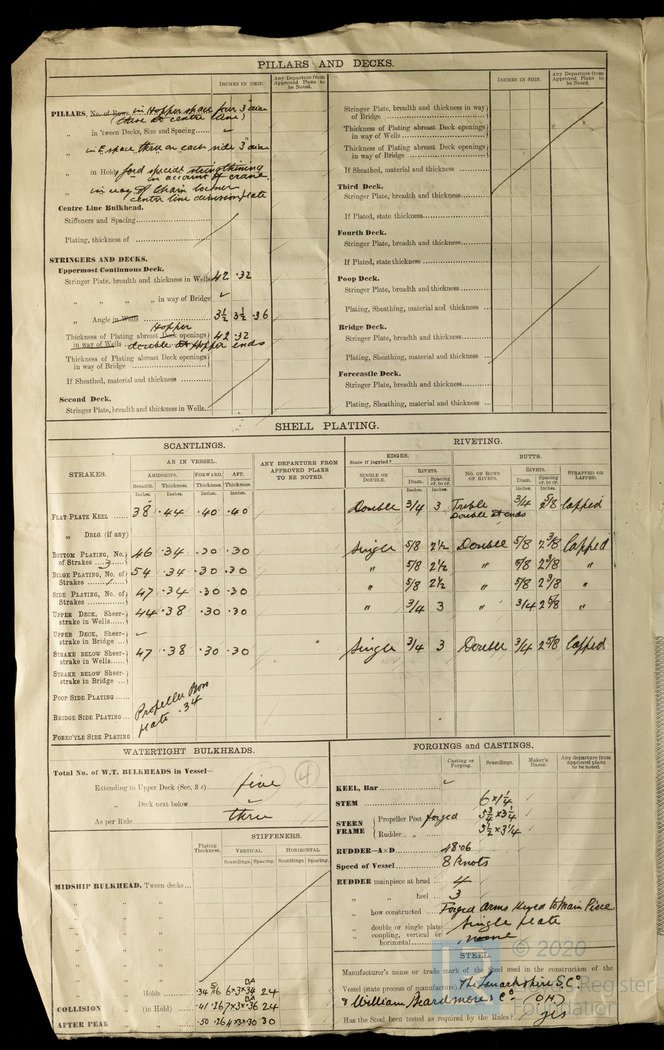 PILLARS AND DECKS.
INCHES IN SHIP.
Any Departure from Approved Plans to be Noted.
PILLARS, No. of Rows in Hopper space four 3" dia
(three at centre line)
„ in 'tween Decks, Size and Spacing
„ in E space three on each side 3" dia
„ in Holds
in account of crane
in way of Chain locker
centre line division plate
Centre Line Bulkhead.
Stiffeners and Spacing
Plating, thickness of
STRINGERS AND DECKS.
Uppermost Continuous Deck.
Stringer Plate, breadth and thickness in Wells 42 .32
„ „ „ „ in way of Bridge ✓
„ Angle in Wells 3½ 3½ .36
Hopper
Thickness of Plating abreast Deck openings in way of Wells 42 .32
double at Hopper ends
Thickness of Plating abreast Deck openings in way of Bridge
If Sheathed, material and thickness
Second Deck.
Stringer Plate, breadth and thickness in Wells
INCHES IN SHIP.
Any Departure from Approved Plans to be Noted.
Stringer Plate, breadth and thickness in way of Bridge
Thickness of Plating abreast Deck openings in way of Wells
Thickness of Plating abreast Deck openings in way of Bridge
If Sheathed, material and thickness
Third Deck.
Stringer Plate, breadth and thickness
If Plated, state thickness
Fourth Deck.
Stringer Plate, breadth and thickness
If Plated, state thickness
Poop Deck.
Stringer Plate, breadth and thickness
Plating, Sheathing, material and thickness
Bridge Deck.
Stringer Plate, breadth and thickness
Plating, Sheathing, material and thickness
Forecastle Deck.
Stringer Plate, breadth and thickness
Plating, Sheathing, material and thickness
SHELL PLATING.
SCANTLINGS.
RIVETING.
STRAKES.
AS IN VESSEL.
AMIDSHIPS. FORWARD. AFT.
Breadth. Thickness. Thickness. Thickness.
Inches. Inches. Inches. Inches.
ANY DEPARTURE FROM APPROVED PLANS TO BE NOTED.
EDGES.
State if joggled?
SINGLE OR DOUBLE.
RIVETS.
Diam. Spacing cr. to cr.
Inches. Inches.
BUTTS.
NO. OF ROWS OF RIVETS.
RIVETS.
Diam. Spacing cr. to cr.
Inches. Inches.
STRAPPED OR LAPPED.
FLAT PLATE KEEL 38" .44 .40 .40 Double 3/4 3 Treble 3/4 2 5/8 lapped
Double at ends
„ DBLG. (if any)
BOTTOM PLATING, No. of Strakes 3 46 .34 .30 .30 Single 5/8 2½ Double 5/8 2 3/8 lapped
BILGE PLATING, No. of Strakes 1 54 .34 .30 .30 „ 5/8 2½ „ 5/8 2 3/8 „
SIDE PLATING, No. of Strakes 47 .34 .30 .30 „ 5/8 2½ „ 5/8 2 3/8 „
UPPER DECK, Sheerstrake in Wells 44 .38 .30 .30 „ 3/4 3 „ 3/4 2 5/8 „
UPPER DECK, Sheerstrake in Bridge ✓
STRAKE BELOW SHEERstrake in Wells 47 .38 .30 .30 Single 3/4 3 Double 3/4 2 5/8 lapped
STRAKE BELOW SHEERstrake in Bridge
POOP SIDE PLATING
BRIDGE SIDE PLATING
FORE'C'LE SIDE PLATING
Propeller Boss
plate .34
WATERTIGHT BULKHEADS.
Total No. of W.T. BULKHEADS in Vessel—
4
Extending to Upper Deck (Sec. 3 c) five
„ Deck next below ✓
As per Rule three
STIFFENERS.
Plating Thickness.
VERTICAL. HORIZONTAL.
Scantlings. Spacing. Scantlings. Spacing.
MIDSHIP BULKHEAD, 'Tween decks
„ Holds
COLLISION „ (in Hold)
AFTER PEAK „
FORGINGS AND CASTINGS.
Casting or Forging.
Scantlings.
Maker's Name.
Any departure from approved plans to be noted.
KEEL, Bar ✓
STEM 6 × 1¼
STERN FRAME { Propeller Post forged 5¾ × 3¼
Rudder „ 3½ × 3¼
RUDDER—A×D 48.06
Speed of Vessel 8 knots
RUDDER mainpiece at head 4
„ „ heel 3
„ how constructed Forged arms keyed to Main Piece
„ double or single plate single plate
„ coupling, vertical or horizontal none
STEEL.
Manufacturer's name or trade mark of the Steel used in the construction of the
Vessel (state process of manufacture) The Lanarkshire S. Co.
& William Beardmore & Co. (OH)
Has the Steel been tested as required by the Rules? yes
© 2020
Register
Foundation